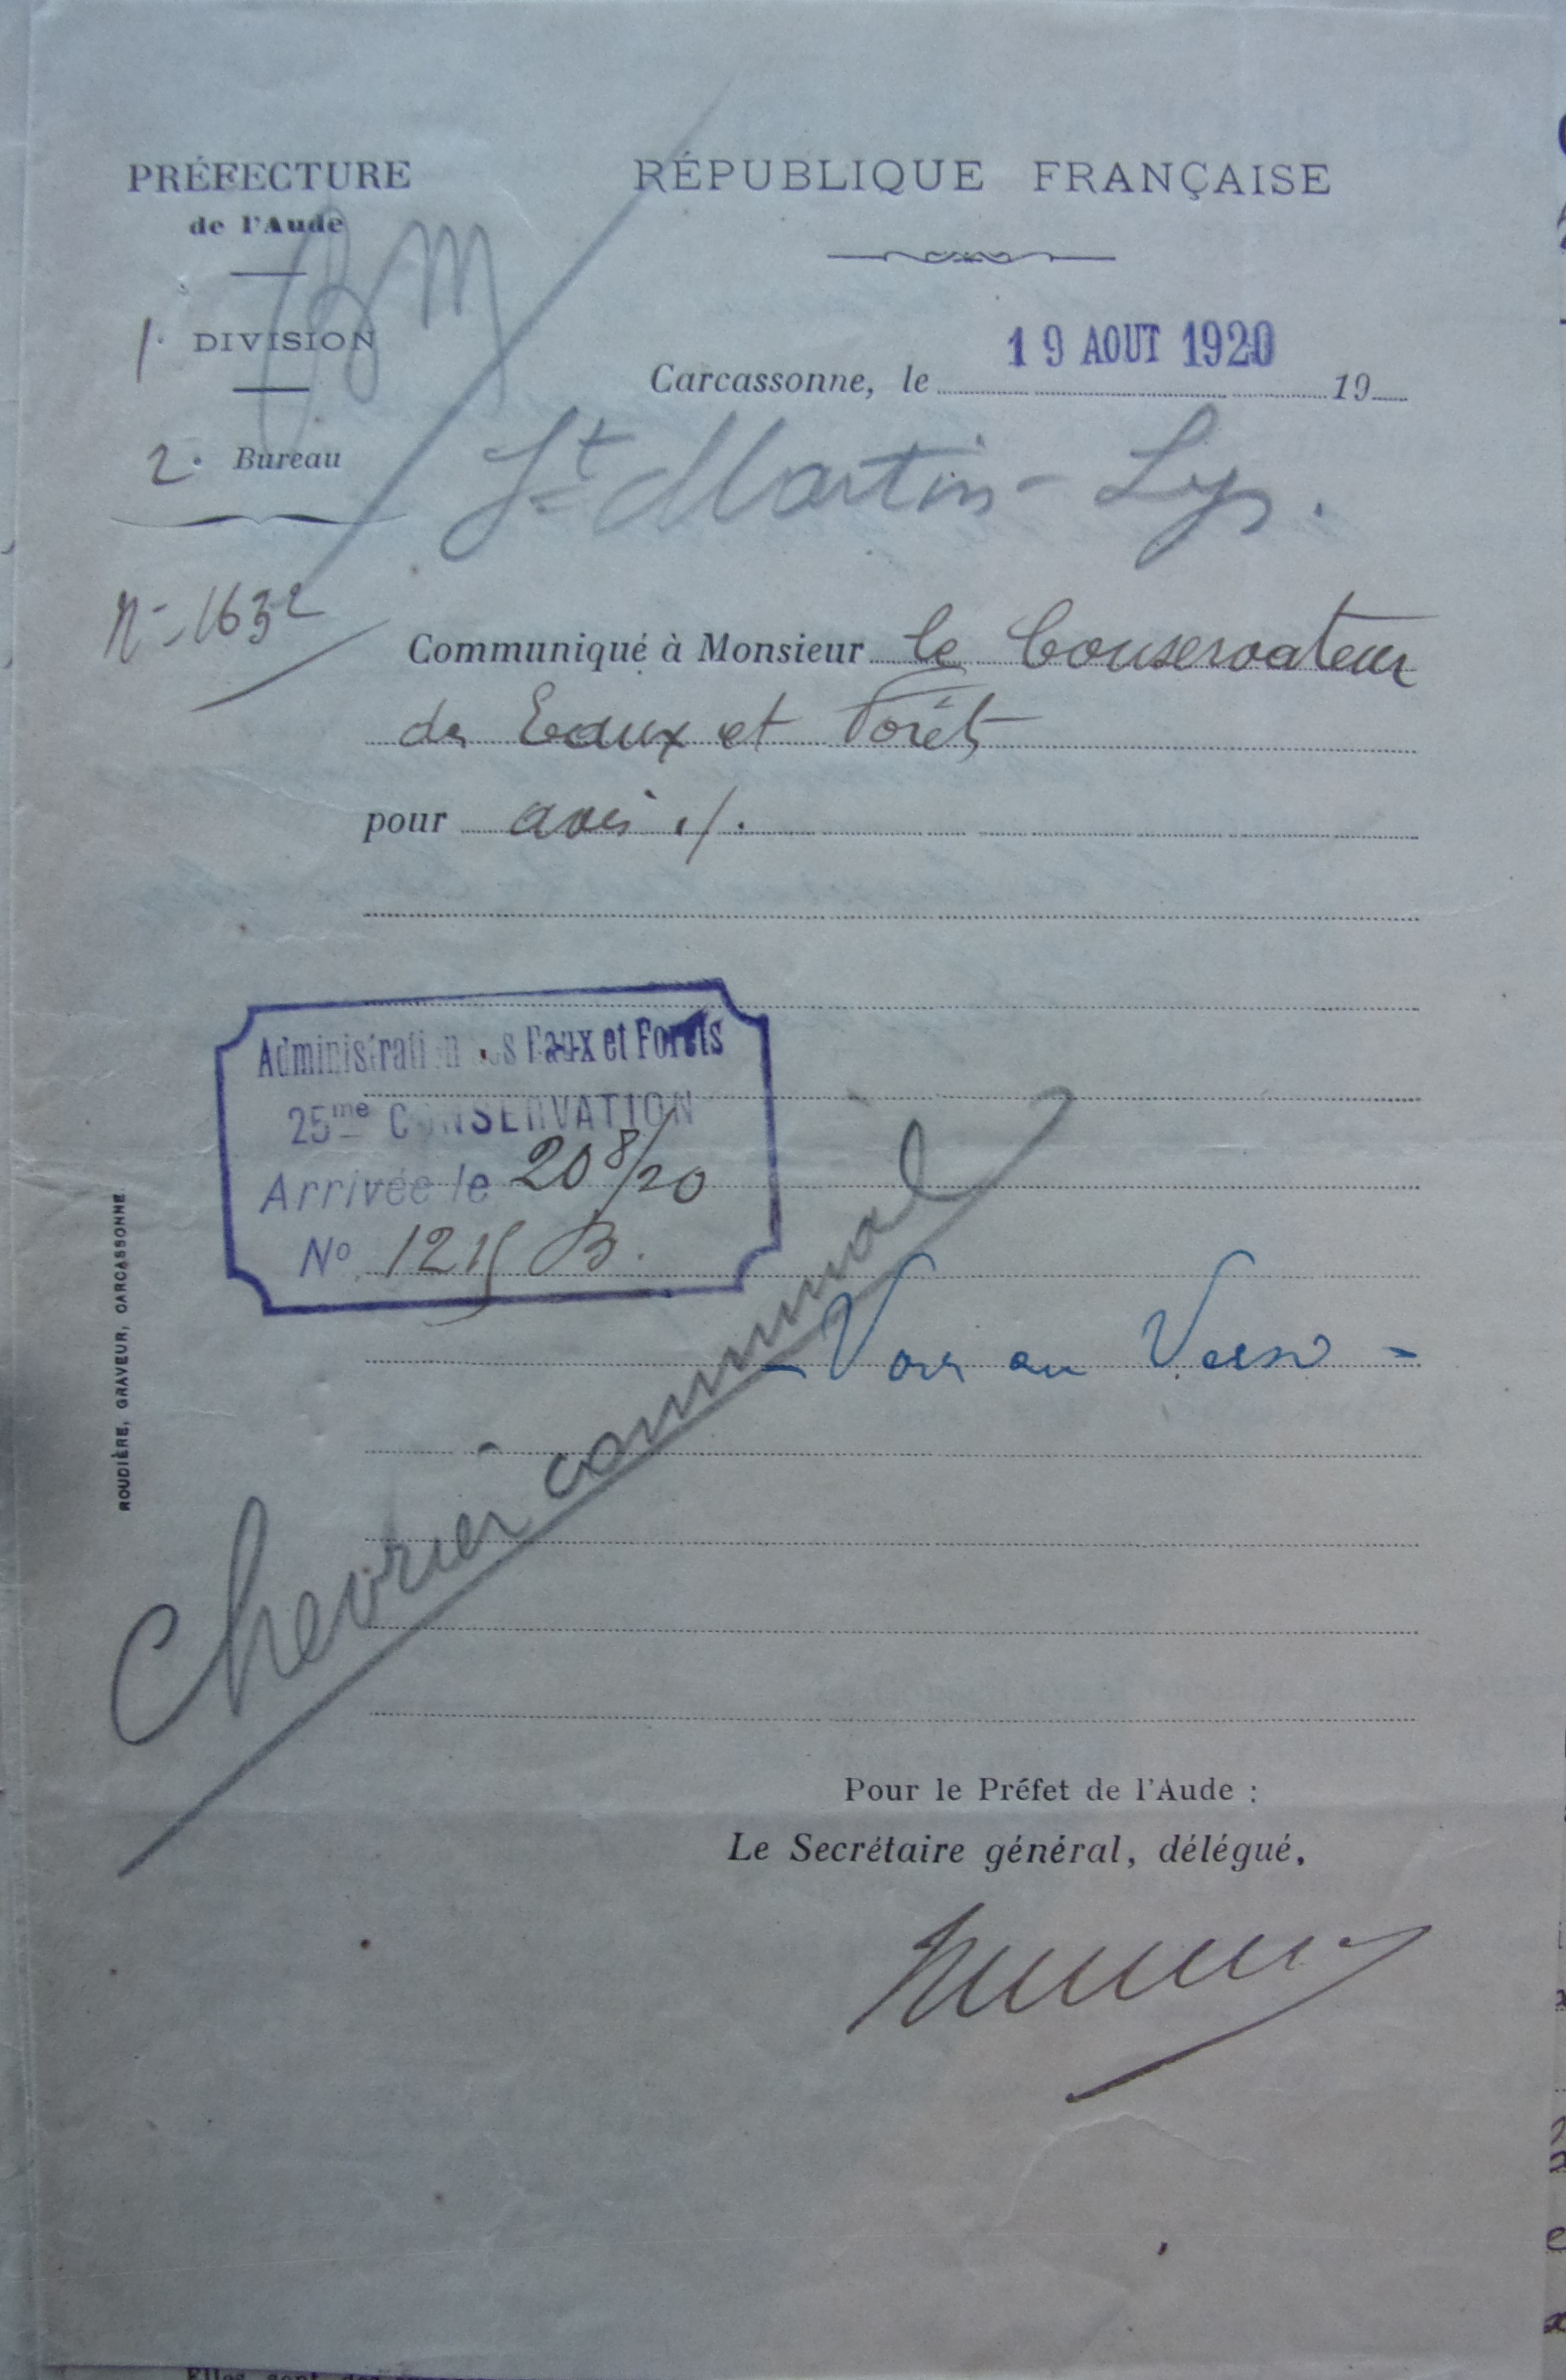 PRÉFECTURE
de l'Aude
1e DIVISION
2e Bureau
RÉPUBLIQUE FRANÇAISE
19 AOUT 1920
Carcassonne, le 19
St Martin-Lys.
N- 1632
Communiqué à Monsieur le Conservateur
des Eaux et Forêts
pour avis ./.
Administration des Eaux et Forêts
25me CONSERVATION
Arrivée le 20 8/20
No 1215 B.
- Voir au Verso -
Chevrier communal
ROUDIÈRE, GRAVEUR, CARCASSONNE
Pour le Préfet de l'Aude :
Le Secrétaire général, délégué,